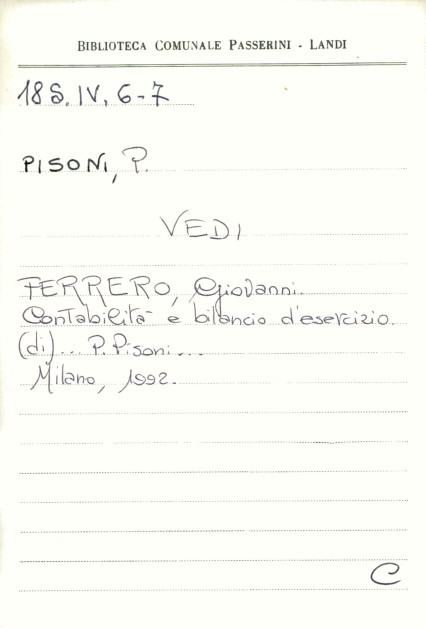 BIBLIOTECA COMUNALE PASSERINI - LANDI
18S. IV, 6-7
PISONI, P.
VEDI
FERRERO, Giovanni.
Contabilità e bilancio d'esercizio.
(di)... P. Pisoni...
Milano, 1992.
C